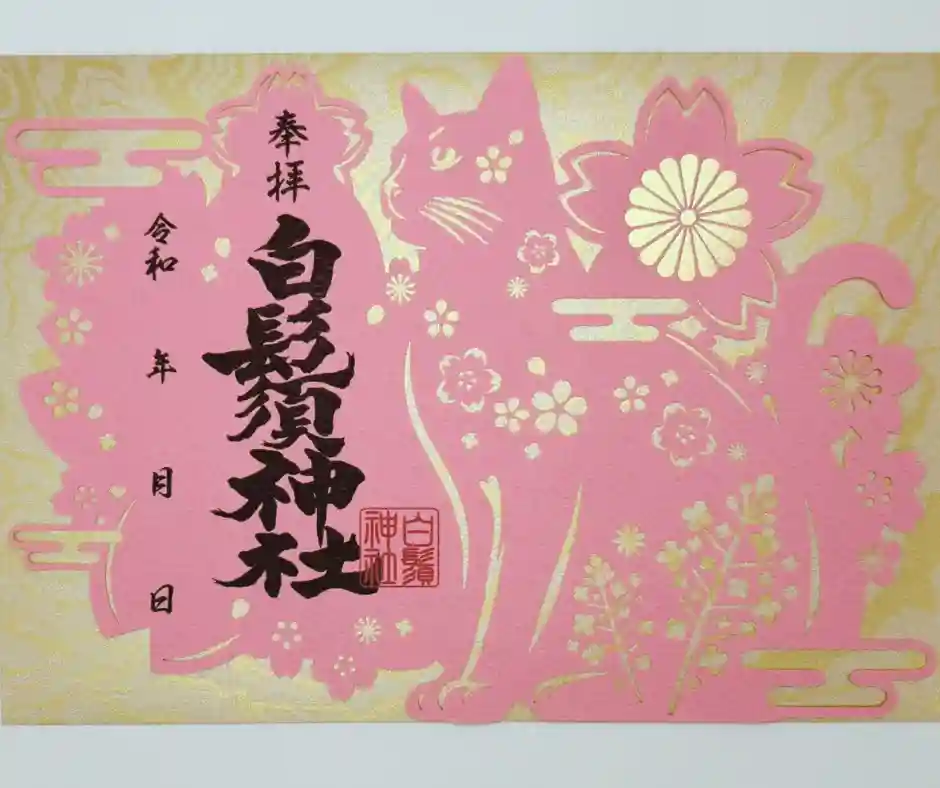 奉拝
白髭須神社
令和 年 月 日
白鬚
神社